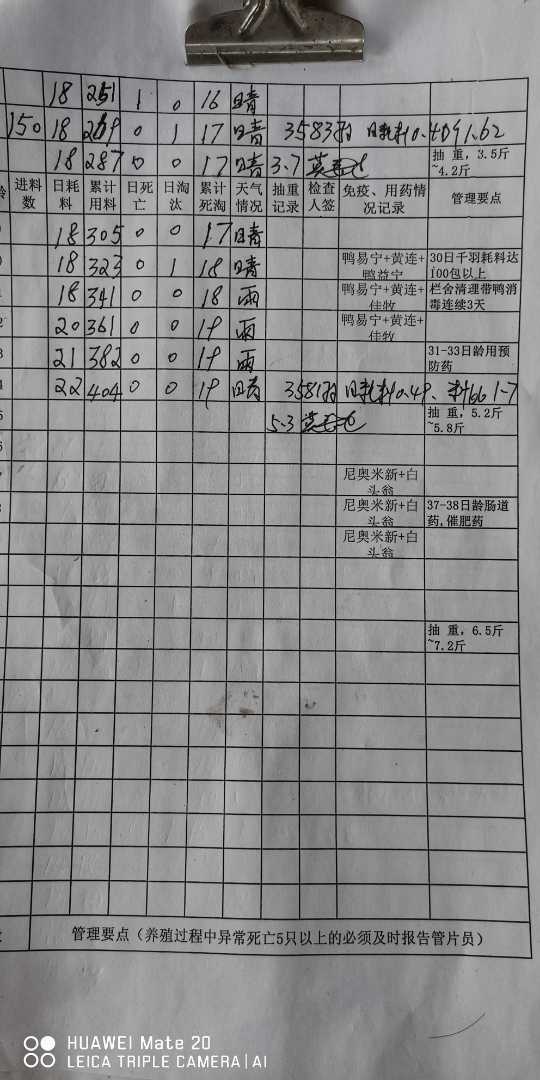 18 251 1 0 16 晴
150 18 269 0 1 17 晴 3583羽 日耗料0.409 1.62
18 287 0 0 17 晴 3.7 抽 重, 3.5斤~4.2斤
龄 进料数 日耗料 累计用料 日死亡 日淘汰 累计死淘 天气情况 抽重记录 检查人签 免疫、用药情况记录 管理要点
18 305 0 0 17 晴
18 323 0 1 18 晴 鸭易宁+黄连+鸭益宁 30日千羽耗料达100包以上
18 341 0 0 18 雨 鸭易宁+黄连+佳牧 栏舍清理带鸭消毒连续3天
20 361 0 0 19 雨 鸭易宁+黄连+佳牧
21 382 0 0 19 雨 31-33日龄用预防药
22 404 0 0 19 晴 3581羽 日耗料0.49、料肉 1.7
5.3 抽 重, 5.2斤~5.8斤
尼奥米新+白头翁
尼奥米新+白头翁 37-38日龄肠道药,催肥药
尼奥米新+白头翁
抽 重, 6.5斤~7.2斤
管理要点（养殖过程中异常死亡5只以上的必须及时报告管片员）
HUAWEI Mate 20
LEICA TRIPLE CAMERA | AI